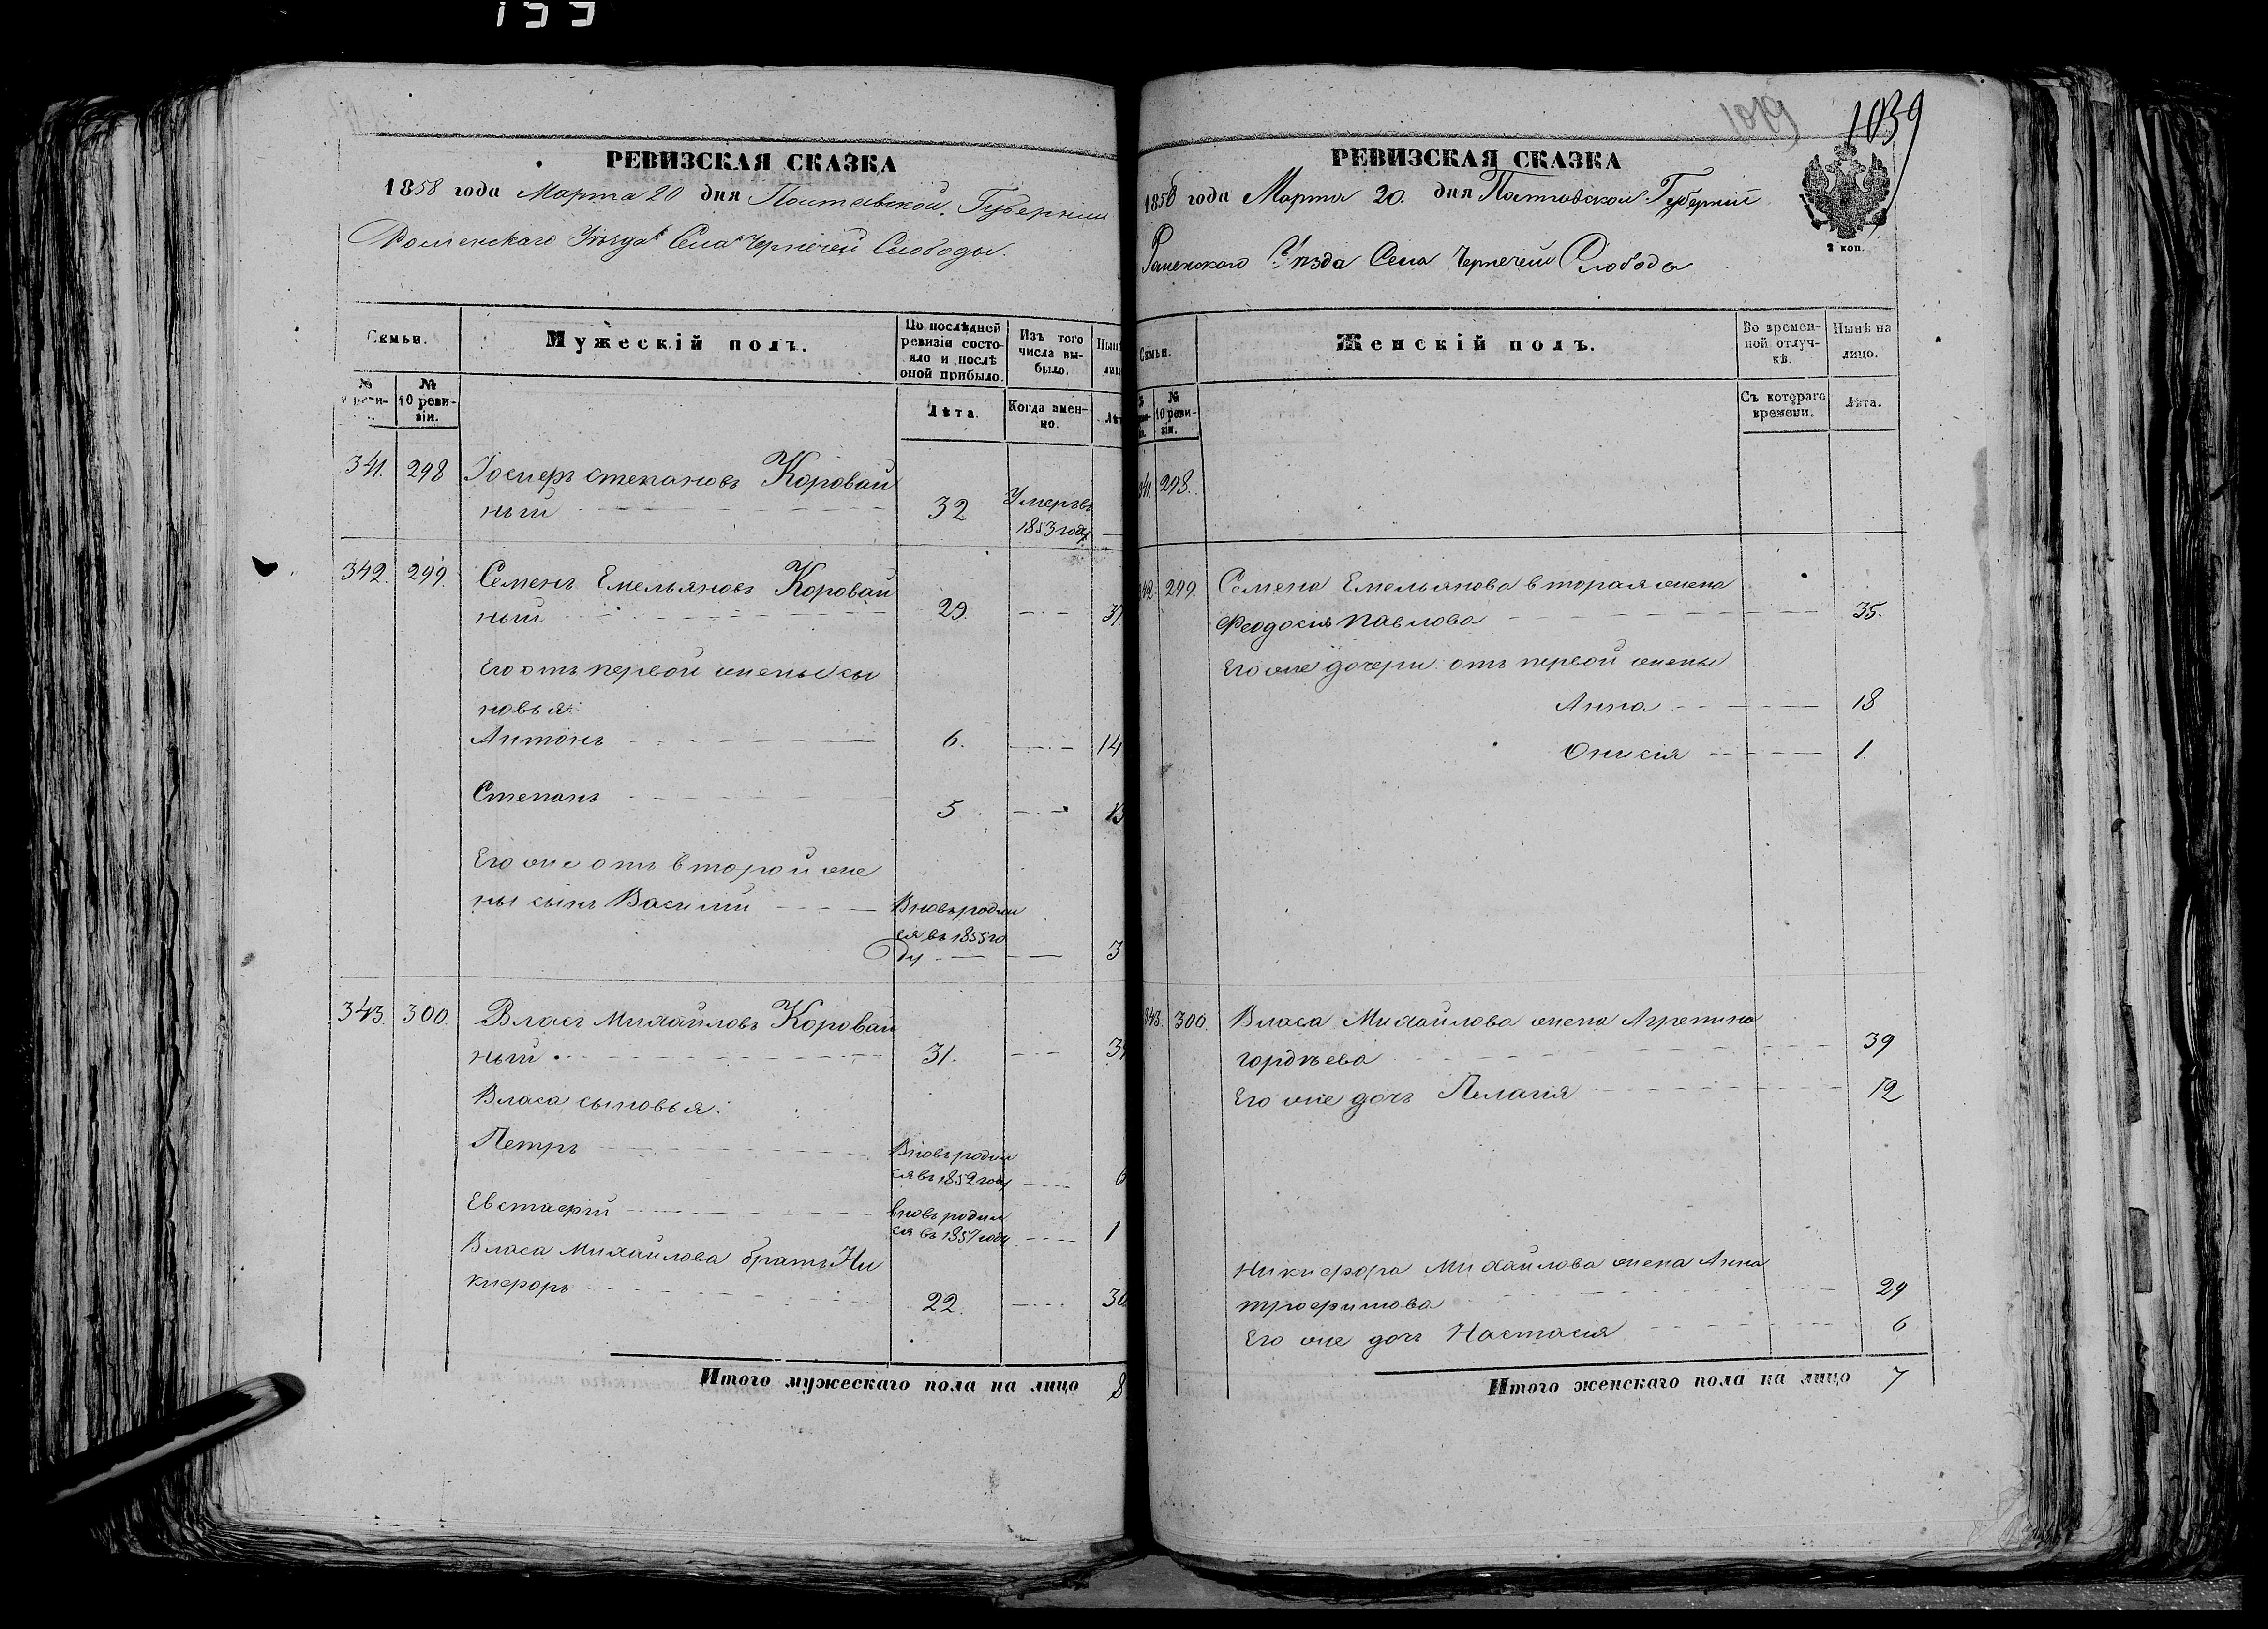 1039
1019
РЕВИЗСКАЯ СКАЗКА
1858 года Марта 20 дня Полтавской Губернии
Роменскаго Уѣзда Села Чернечей Слободы.
Семьи.
Мужескій полъ.
По послѣдней ревизіи состояло и послѣ оной прибыло.
Изъ того числа выбыло.
Нынѣ
лиц
№
реви-
№
10 реви-
зіи.
Лѣта.
Когда имен-
но.
Лѣт
341. 298 Іосифъ степановъ Коровай
ный 32 Умеръ въ
1853 году
342. 299. Семенъ Емельяновъ Коровай
ный 29. 37.
Его отъ первой жены сы
новья:
Антонъ 6. 14
Степанъ 5 13
Его же отъ второй же
ны сынъ Василий Вновь родил
ся въ 1855 го
ду 3
343. 300. Власъ Михайловъ Коровай
ный 31. 39
Власа сыновья:
Петръ Вновь родил
ся въ 1852 году 6
Евстафій вновь родил
ся въ 1857 году 1
Власа Михайлова братъ Ни
кифоръ 22. 30
Итого мужескаго пола на лицо 8
РЕВИЗСКАЯ СКАЗКА
1858 года Марта 20. дня Полтавской Губерніи
Роменскаго Уѣзда Села Чернечей Слободы
2 коп.
Семьи.
Женскій полъ.
Во времен-
ной отлуч-
кѣ.
Нынѣ на
лицо.
№
10 реви-
зіи.
Съ котораго
времени.
Лѣта.
341. 298.
342. 299. Семена Емельянова вторая жена
Феодосия Павлова 35.
Его же дочери отъ первой жены
Анна 18
Оникия 1.
343. 300. Власа Михайлова жена Агрепина
гордѣева 39
Его же дочь Пелагия 12
Никифора Михайлова жена Анна
трофимова 29
Его же дочь Настасия 6
Итого женскаго пола на лицо 7